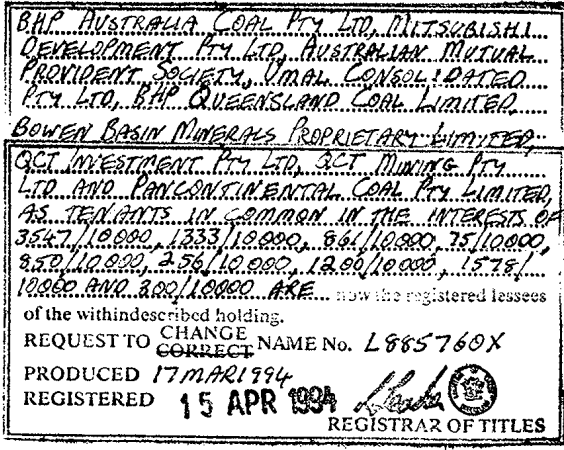 BHP AUSTRALIA COAL PTY LTD, MITSUBISHI
DEVELOPMENT PTY LTD, AUSTRALIAN MUTUAL
PROVIDENT SOCIETY, UMAL CONSOLIDATED
PTY LTD, BHP QUEENSLAND COAL LIMITED,
BOWEN BASIN MINERALS PROPRIETARY LIMITED,
QCT INVESTMENT PTY LTD, QCT MINING PTY
LTD AND PANCONTINENTAL COAL PTY LIMITED,
AS TENANTS IN COMMON IN THE INTERESTS OF
3547/10000, 1333/10000, 861/10000, 75/10000,
850/10000, 256/10000, 1200/10000, 1578/
10000 AND 300/10000 ARE now the registered lessees
of the withindescribed holding.
REQUEST TO CHANGE CORRECT NAME No. L885760X
PRODUCED 17 MAR 1994
REGISTERED 15 APR 1994
REGISTRAR OF TITLES